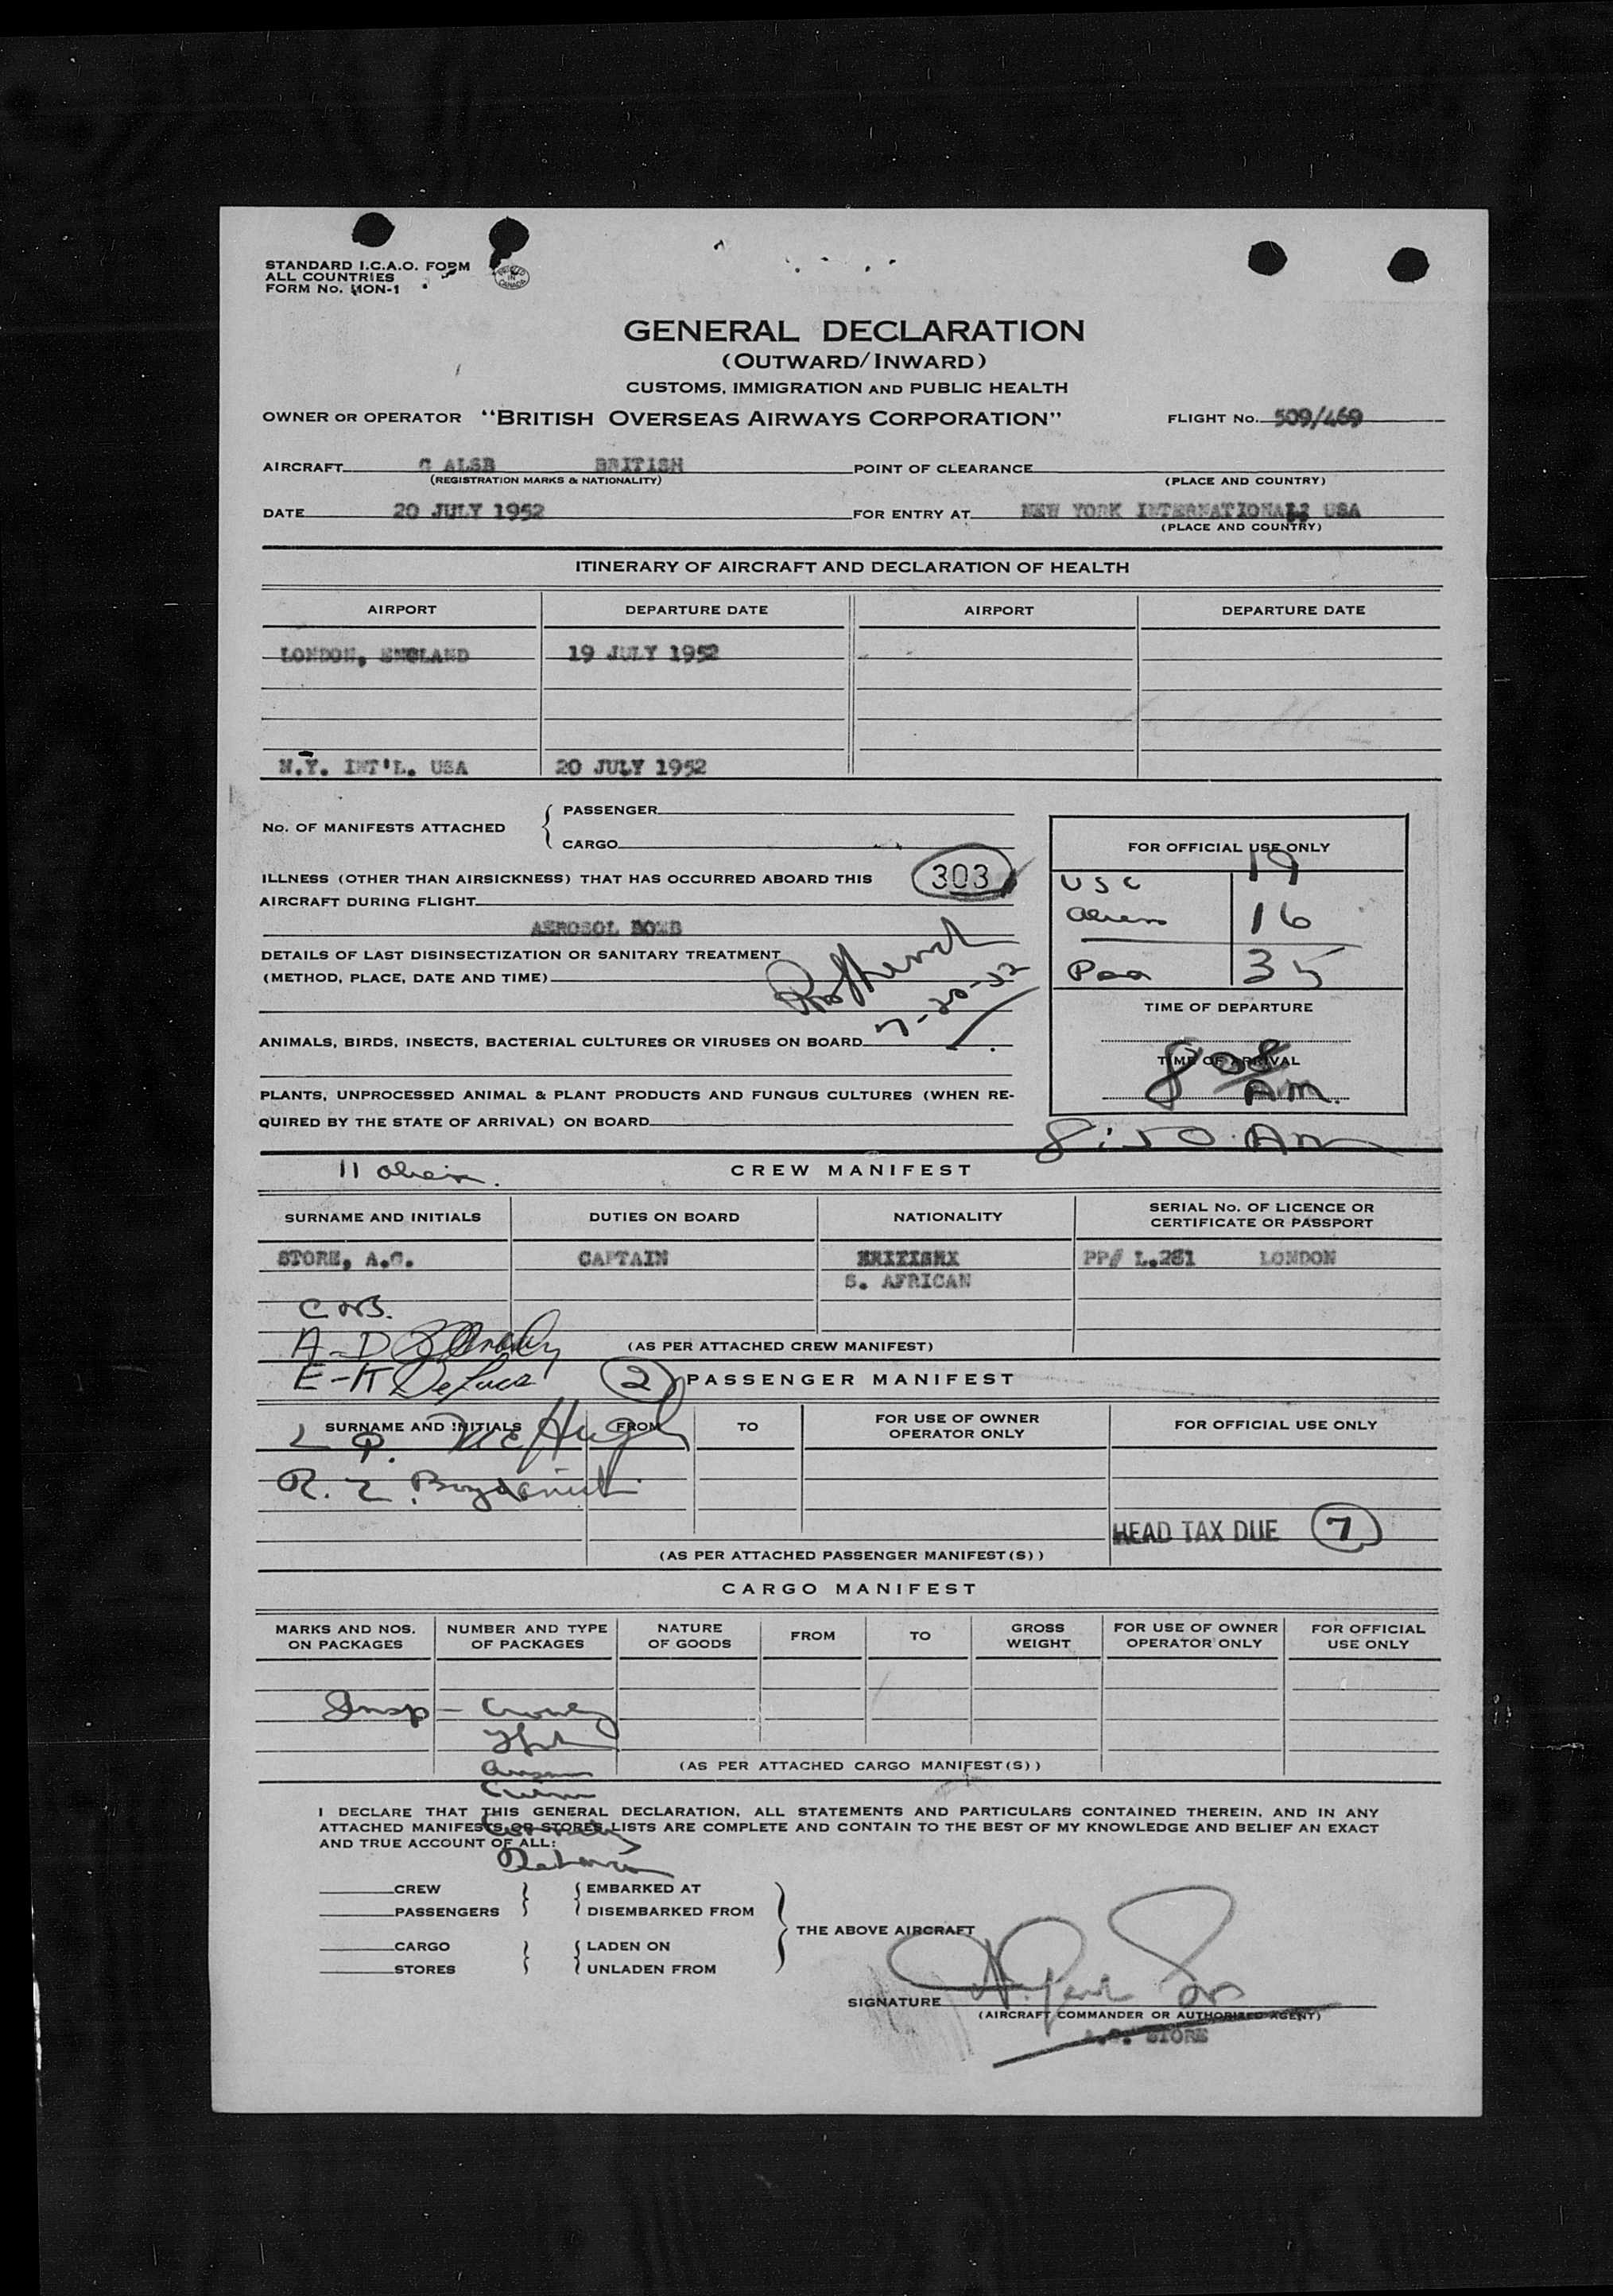 STANDARD I.C.A.O. FORM
ALL COUNTRIES
FORM No. MON-1
PRINTED IN CANADA
GENERAL DECLARATION
(OUTWARD/INWARD)
CUSTOMS, IMMIGRATION AND PUBLIC HEALTH
OWNER OR OPERATOR "BRITISH OVERSEAS AIRWAYS CORPORATION" FLIGHT No. 509/469
AIRCRAFT G ALSB BRITISH POINT OF CLEARANCE
(REGISTRATION MARKS & NATIONALITY) (PLACE AND COUNTRY)
DATE 20 JULY 1952 FOR ENTRY AT NEW YORK INTERNATIONAL, USA
(PLACE AND COUNTRY)
ITINERARY OF AIRCRAFT AND DECLARATION OF HEALTH
AIRPORT DEPARTURE DATE AIRPORT DEPARTURE DATE
LONDON, ENGLAND 19 JULY 1952
N.Y. INT'L. USA 20 JULY 1952
No. OF MANIFESTS ATTACHED
PASSENGER
CARGO
ILLNESS (OTHER THAN AIRSICKNESS) THAT HAS OCCURRED ABOARD THIS
AIRCRAFT DURING FLIGHT
303
AEROSOL BOMB
DETAILS OF LAST DISINSECTIZATION OR SANITARY TREATMENT
(METHOD, PLACE, DATE AND TIME)
7-20-52
ANIMALS, BIRDS, INSECTS, BACTERIAL CULTURES OR VIRUSES ON BOARD
PLANTS, UNPROCESSED ANIMAL & PLANT PRODUCTS AND FUNGUS CULTURES (WHEN RE-
QUIRED BY THE STATE OF ARRIVAL) ON BOARD
FOR OFFICIAL USE ONLY
USC 19
Aliens 16
Paa 35
TIME OF DEPARTURE
TIME OF ARRIVAL
808 AM.
8:50 AM
11 alien.
CREW MANIFEST
SURNAME AND INITIALS DUTIES ON BOARD NATIONALITY SERIAL No. OF LICENCE OR CERTIFICATE OR PASSPORT
STORE, A.C. CAPTAIN BRITISHX PP# L.281 LONDON
S. AFRICAN
A-D
(AS PER ATTACHED CREW MANIFEST)
E-K DeLuca
2
PASSENGER MANIFEST
SURNAME AND INITIALS FROM TO FOR USE OF OWNER OPERATOR ONLY FOR OFFICIAL USE ONLY
L P. McHugh
R. Z
HEAD TAX DUE 7
(AS PER ATTACHED PASSENGER MANIFEST(S))
CARGO MANIFEST
MARKS AND NOS. ON PACKAGES NUMBER AND TYPE OF PACKAGES NATURE OF GOODS FROM TO GROSS WEIGHT FOR USE OF OWNER OPERATOR ONLY FOR OFFICIAL USE ONLY
Insp -
(AS PER ATTACHED CARGO MANIFEST(S))
I DECLARE THAT THIS GENERAL DECLARATION, ALL STATEMENTS AND PARTICULARS CONTAINED THEREIN, AND IN ANY
ATTACHED MANIFESTS OR STORES LISTS ARE COMPLETE AND CONTAIN TO THE BEST OF MY KNOWLEDGE AND BELIEF AN EXACT
AND TRUE ACCOUNT OF ALL:
CREW
PASSENGERS
EMBARKED AT
DISEMBARKED FROM
CARGO
STORES
LADEN ON
UNLADEN FROM
THE ABOVE AIRCRAFT
SIGNATURE
(AIRCRAFT COMMANDER OR AUTHORISED AGENT)
A.C. STORE